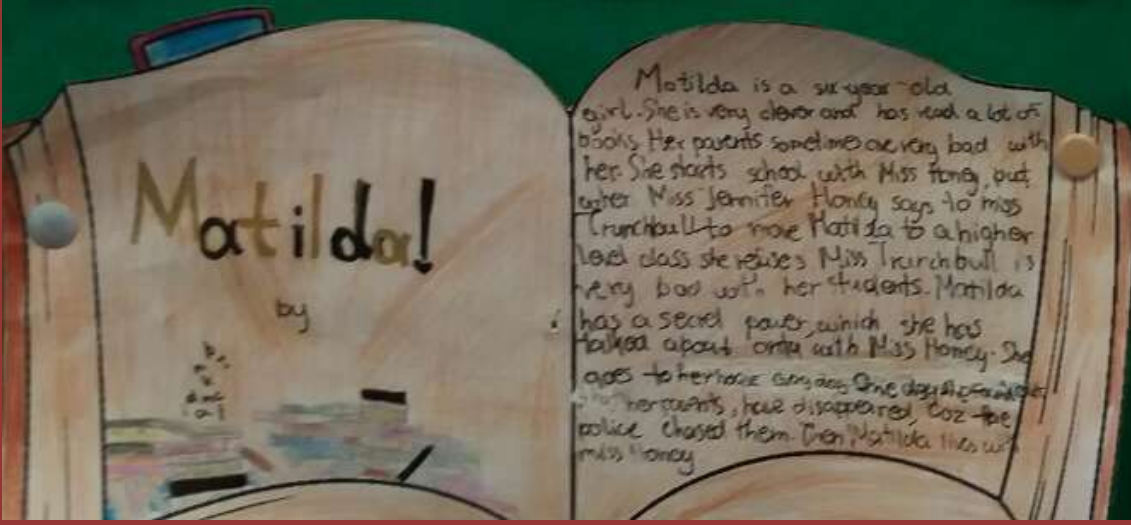 Matilda!
by
Matilda is a six-year-old
girl. She is very clever and has read a lot of
books. Her parents sometimes are very bad with
her. She starts school with Miss Honey, but
when Miss Jennifer Honey says to miss
Trunchbull to move Matilda to a higher
level class she refuses Miss Trunchbull is
very bad with her students. Matilda
has a secret power, which she has
talked about only with Miss Honey. She
goes to her house One day she
her parents, have disappeared, coz the
police chased them. Then Matilda lives with
miss Honey